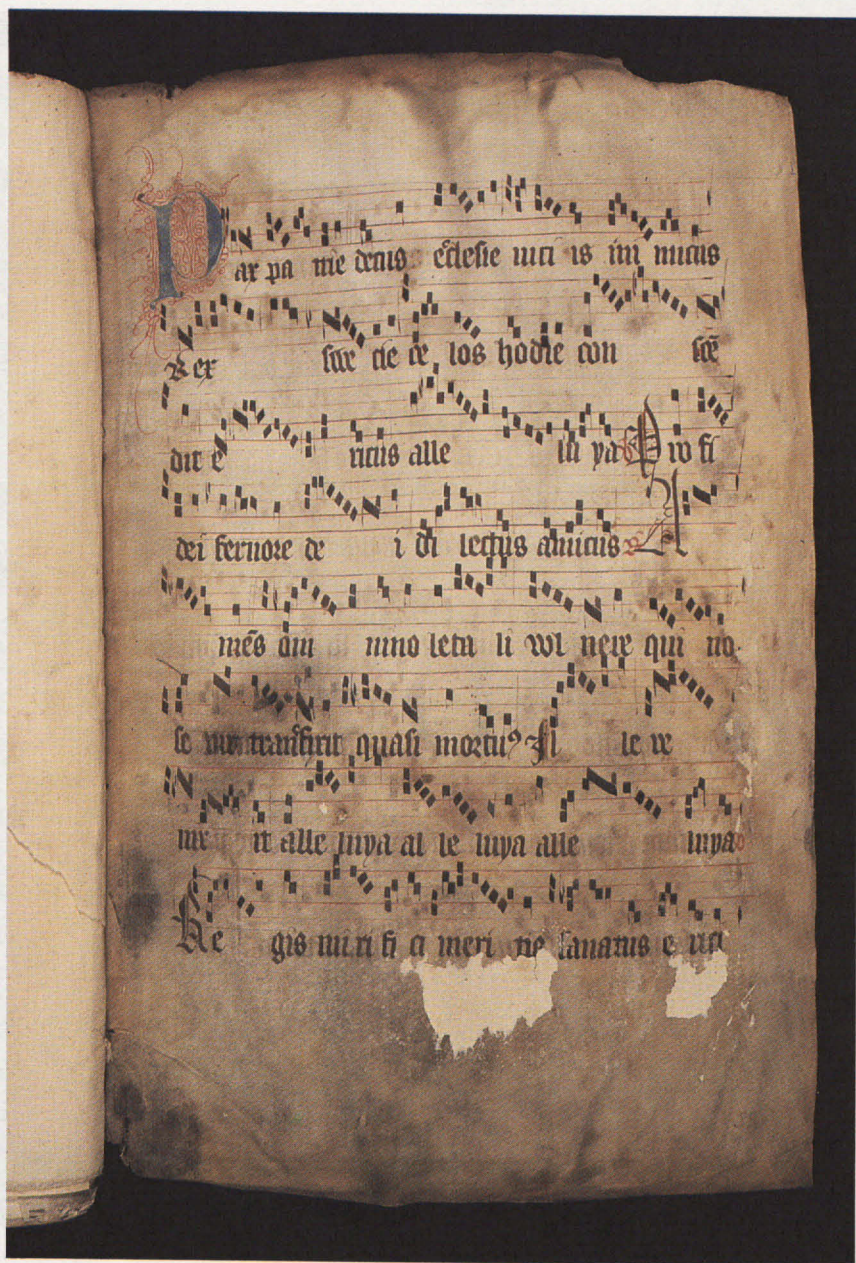 Pax pa trie decus ecclesie uici is ini micus
Rex sue cie ce los hodie con scē
dit e ricus alle lu ya Pro fi
dei feruore de i di lectus amicus A
mēs om nino leta li vol nere qui no
se transfixit quasi mortuꝰ Al le re
it alle luya al le luya alle luya
Re gis miri fi ci meri tis sanatus e